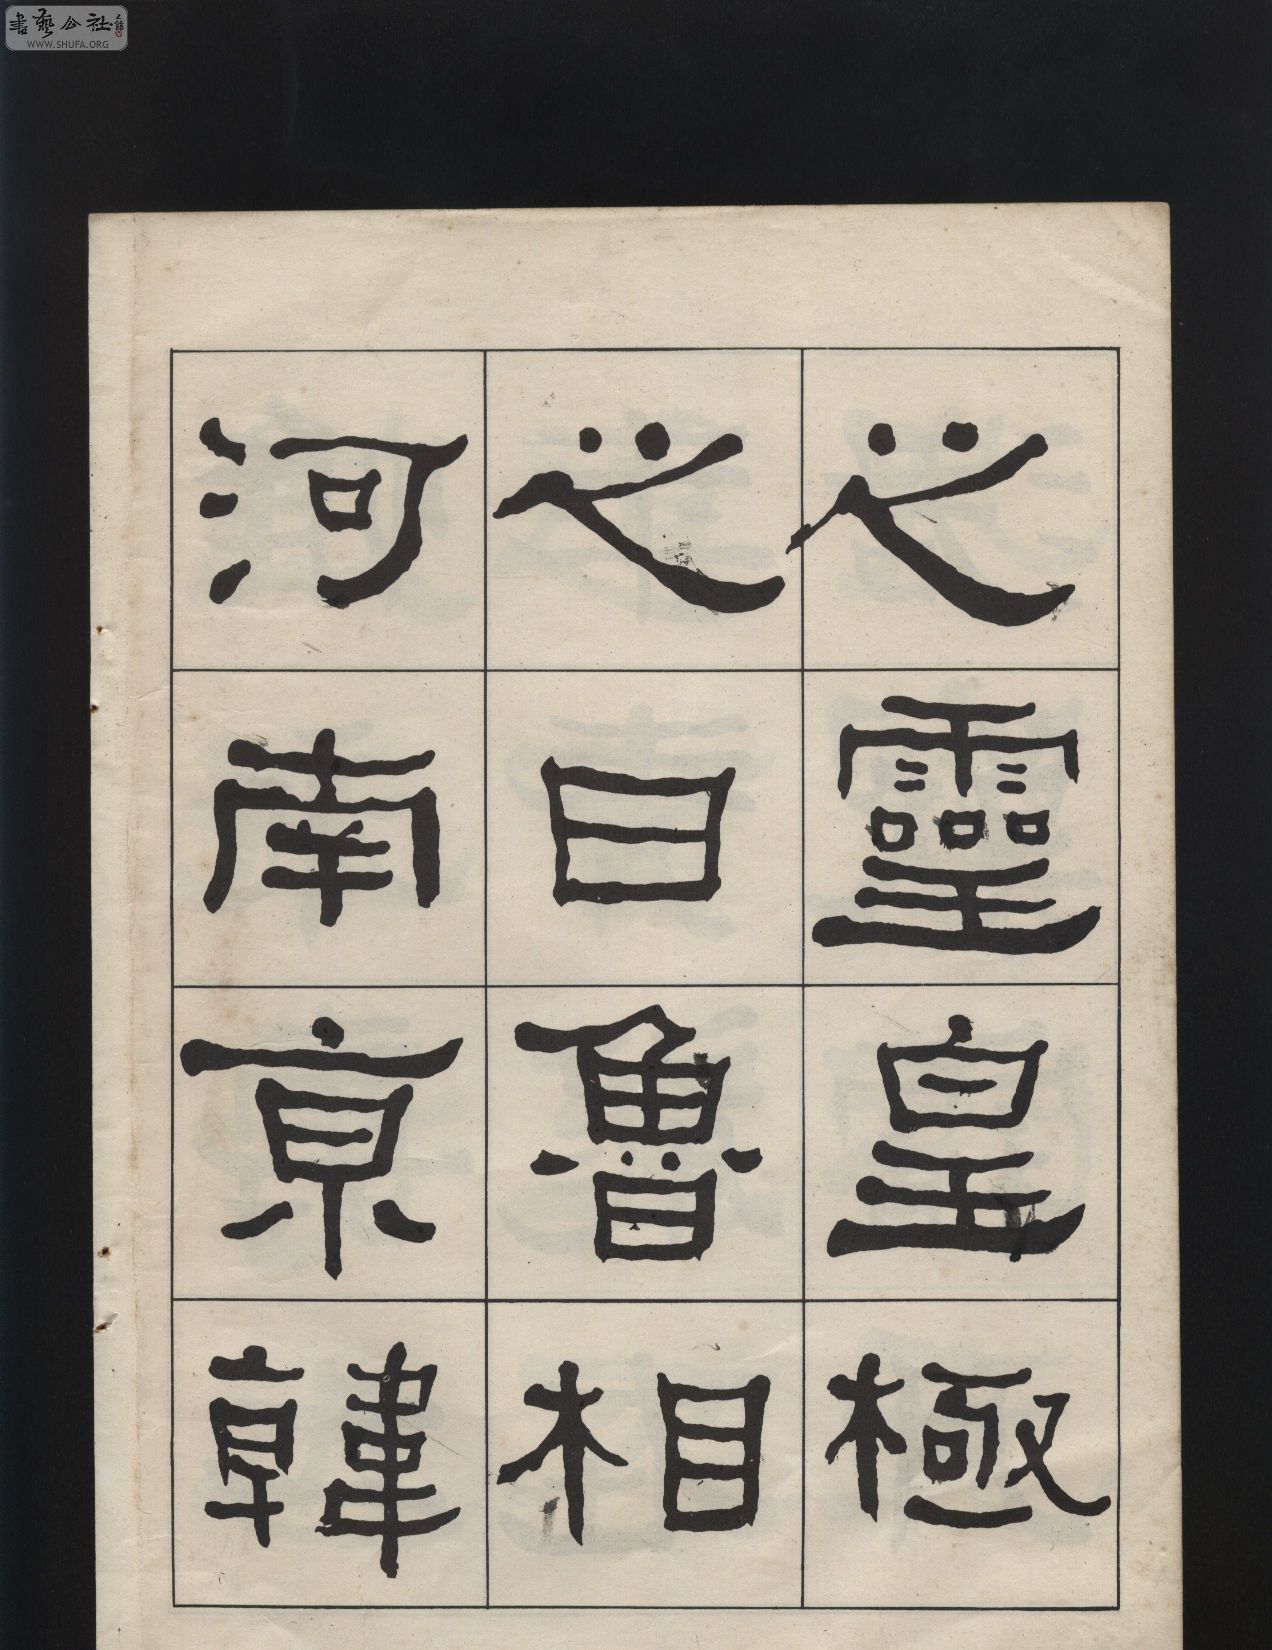 書藝公社
WWW.SHUFA.ORG
之靈皇極
之日魯相
河南京韓